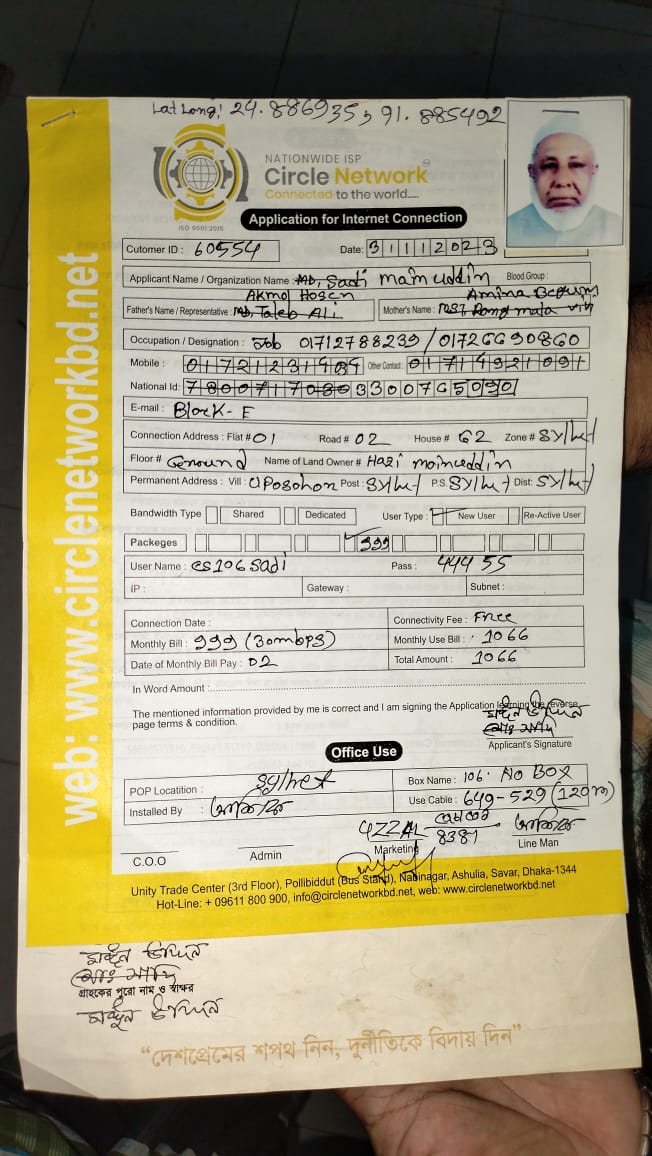 Lat Long: 24.886935, 91.885492
NATIONWIDE ISP
Circle Network
Connected to the world.....
ISO 9001:2015
Application for Internet Connection
Cutomer ID : 60554 Date: 3 1 1 1 2 0 2 3
Applicant Name / Organization Name : MD, Sadi mainuddin Blood Group :
Akmol Hosen Amina Begum
Father's Name / Representative : MD, Taleb Ali Mother's Name : MST Rong mala
Occupation / Designation : Job 01712788239 / 01726690860
Mobile : Other Contact :
National Id: 3300765090
E-mail : Block - E
Connection Address : Flat # 01 Road # 02 House # 62 Zone # Sylhet
Floor # Ground Name of Land Owner # Hazi moinuddin
Permanent Address : Vill : Uposohon Post : Sylhet P.S. Sylhet Dist: Sylhet
Bandwidth Type Shared Dedicated User Type : New User Re-Active User
Packeges 999
User Name : cs106sadi Pass : 444 55
IP : Gateway : Subnet :
Connection Date : Connectivity Fee : Free
Monthly Bill : 999 (30mbps) Monthly Use Bill : 1066
Date of Monthly Bill Pay : 02 Total Amount : 1066
In Word Amount :
The mentioned information provided by me is correct and I am signing the Application learning the reverse
page terms & condition.
মঈন উদ্দিন
Applicant's Signature
Office Use
POP Locatition : Sylhet Box Name : 106. No BOX
Installed By : Use Cable : 649-529 (120m)
8387
C.O.O Admin Marketing Line Man
Unity Trade Center (3rd Floor), Pollibiddut (Bus Stand), Nabinagar, Ashulia, Savar, Dhaka-1344
Hot-Line: + 09611 800 900, info@circlenetworkbd.net, web: www.circlenetworkbd.net
web: www.circlenetworkbd.net
মঈন উদ্দিন
গ্রাহকের পুরো নাম ও স্বাক্ষর
মঈন উদ্দিন
“দেশপ্রেমের শপথ নিন, দুর্নীতিকে বিদায় দিন”